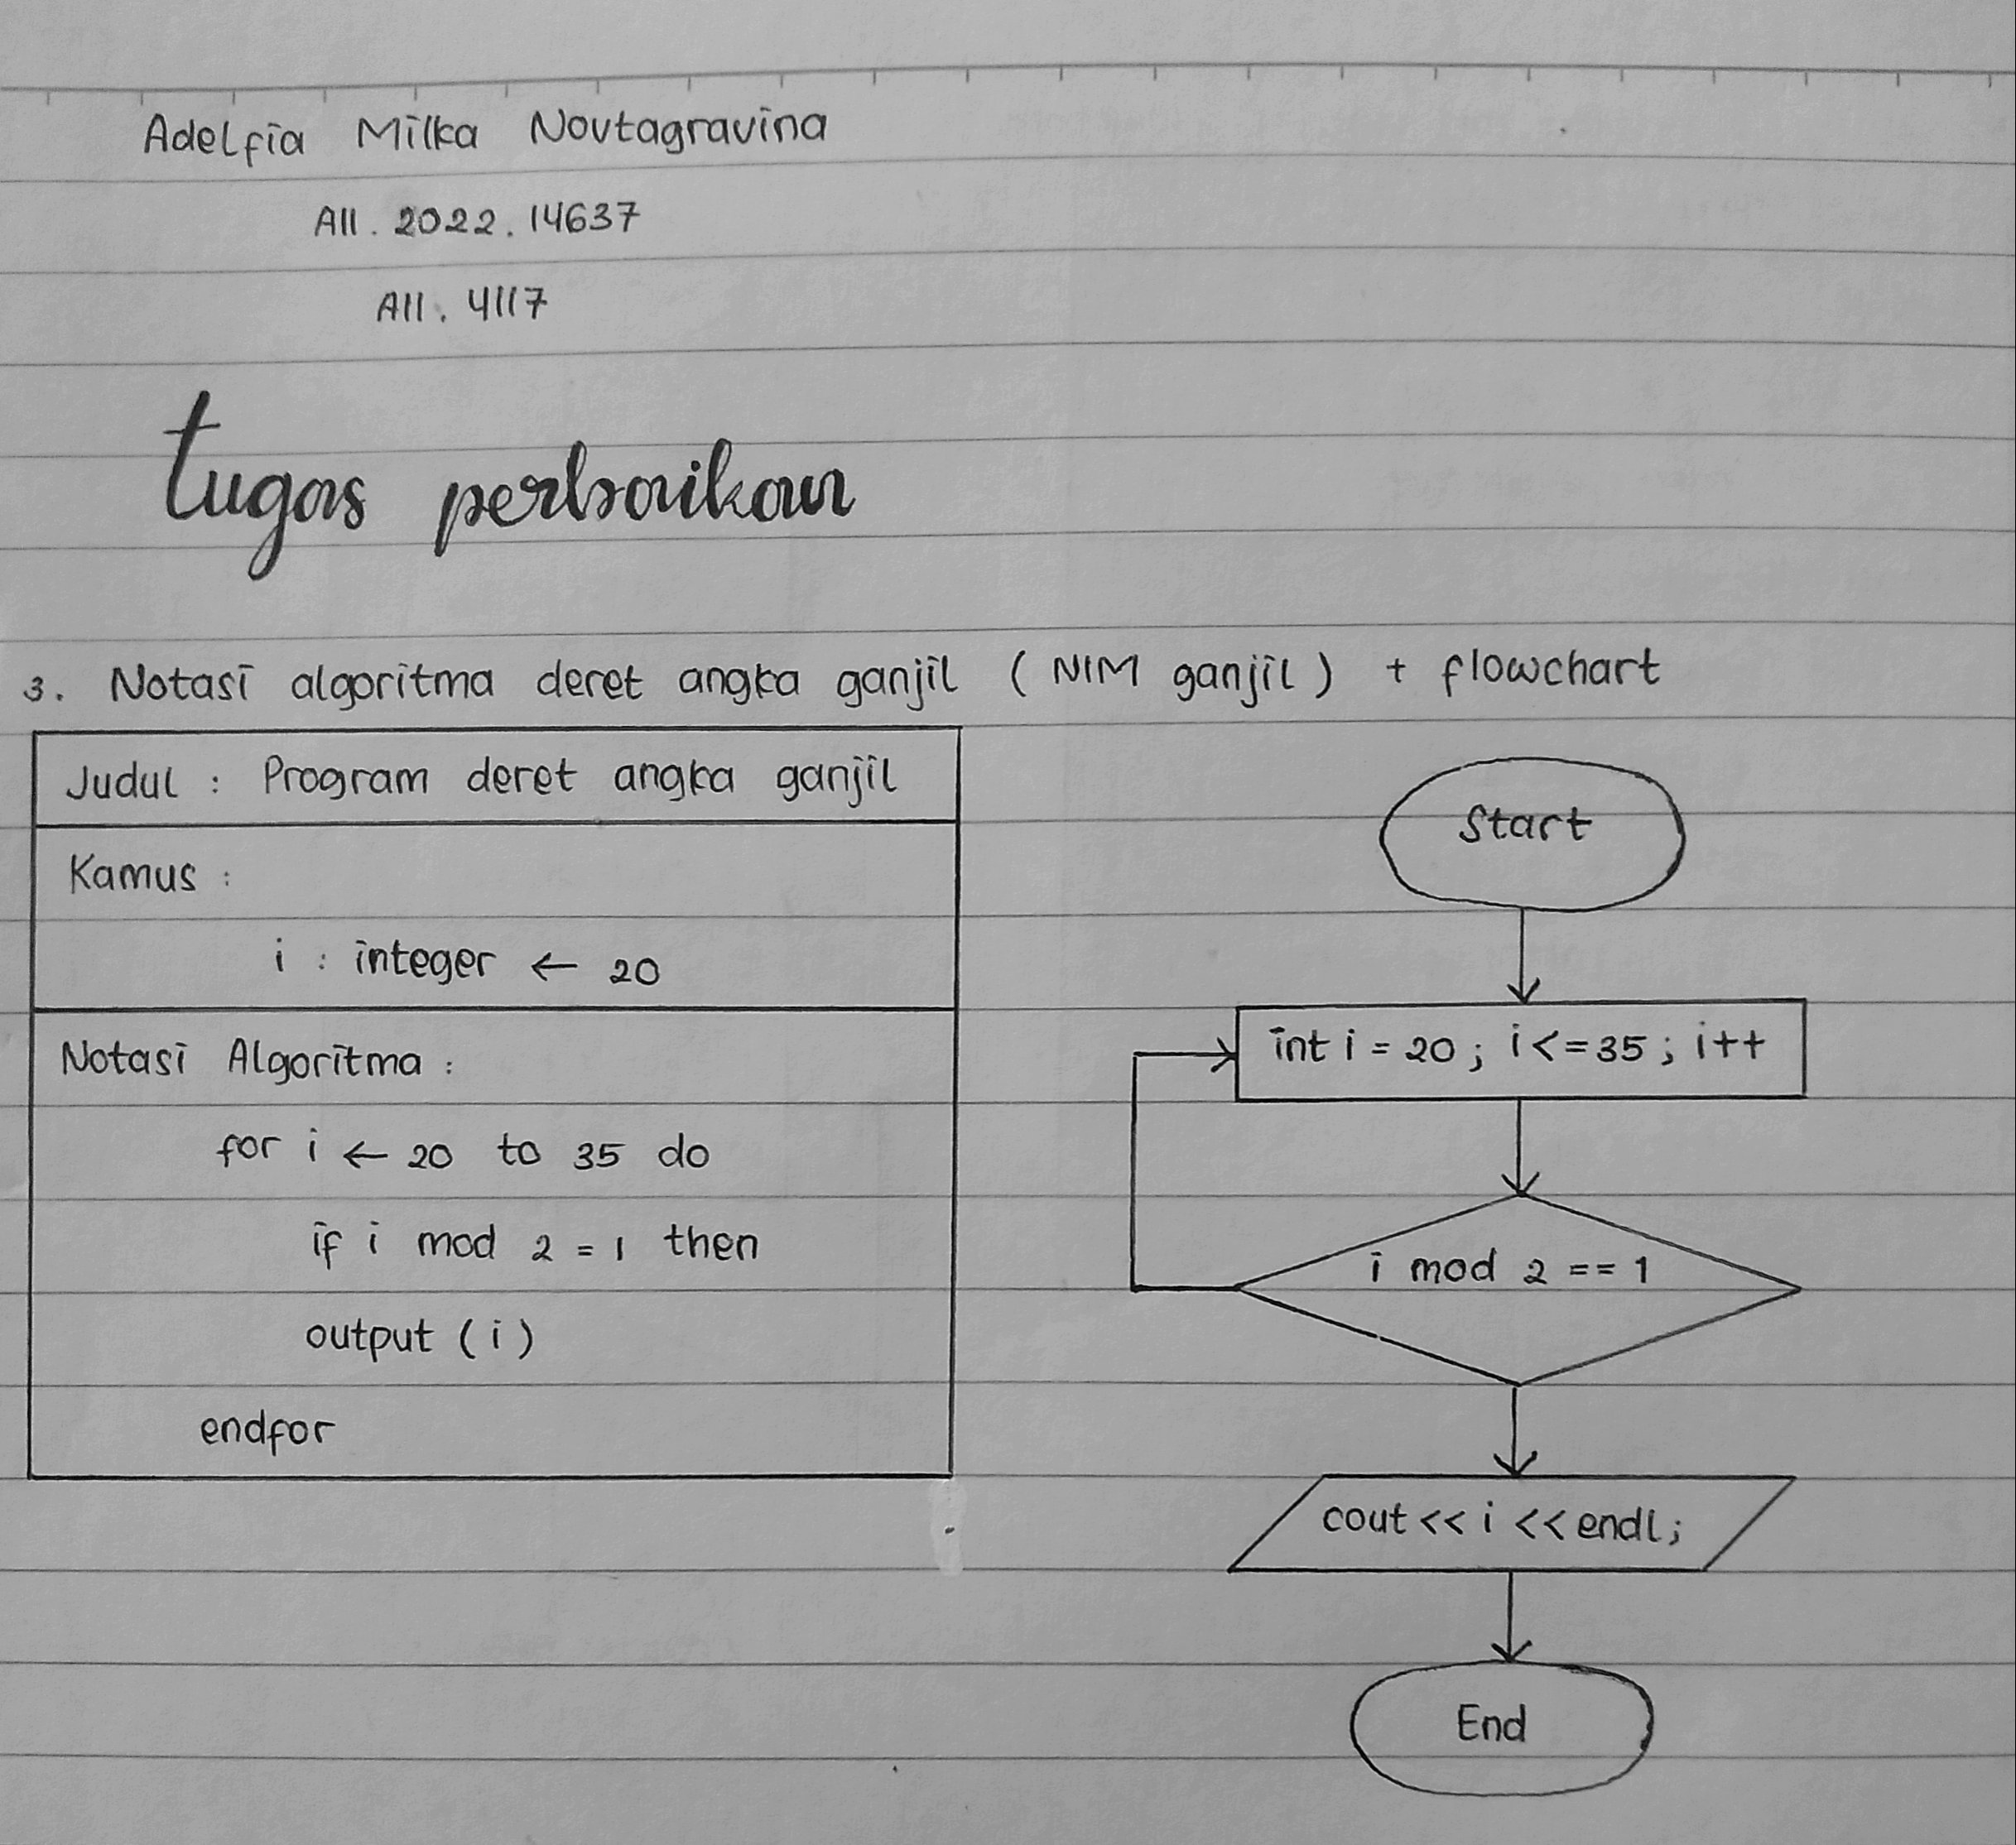 Adelfia Milka Novtagravina
A11. 2022. 14637
A11. 4117
tugas perbaikan
3. Notasi algoritma deret angka ganjil (NIM ganjil) + flowchart
Judul : Program deret angka ganjil
Kamus :
i : integer ← 20
Notasi Algoritma :
for i ← 20 to 35 do
if i mod 2 = 1 then
output (i)
endfor
Start
int i = 20 ; i <= 35 ; i++
i mod 2 == 1
cout << i << endl;
End